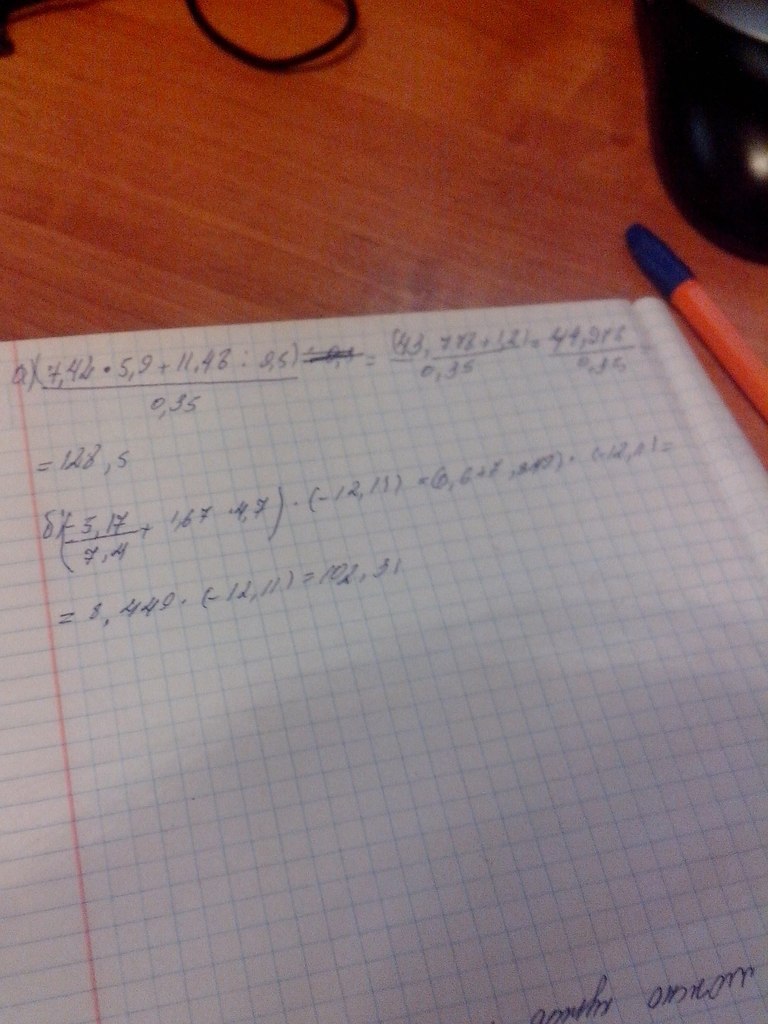 а)(7,42 • 5,9 + 11,48 : 9,5) / 0,35 = (43,778+1,2) / 0,35 = 44,978 / 0,35
= 128,5
б)(-5,17 / 7,4 + 1,67 · 4,7) · (-12,11) = (0,6+7,849) · (-12,11) =
= 8,449 · (-12,11) = 102,31
можно